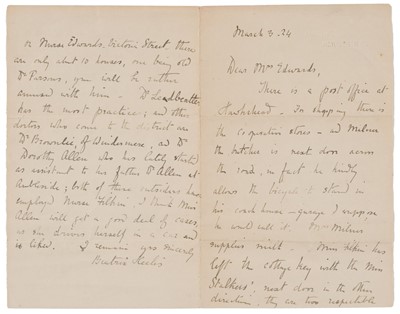 March 3. 24
Dear Mrs Edwards,
There is a post office at
Hawkshead. In shopping there is
the co-operative stores - and Milner
the butcher is next door across
the road, in fact he kindly
allows the bicycle to stand in
his coach house - garage I suppose
he would call it. Mrs Milner
supplies milk. Miss Filkin has
left the cottage key with the Miss
Walkers', next door in the other
direction; they are two respectable
or Nurse Edwards, Victoria Street, there
are only about 10 houses, one being old
Dr Parsons; you will be rather
amused with him - Dr
has the most practice; and other
doctors who come to the district are
Dr Brownlie, of Windermere, and Dr
Dorothy Allen who has lately started
as assistant to her father Dr Allen at
Ambleside; both of these outsiders have
employed Nurse Filkin. I think Miss
Allen will get a good deal of cases
as she drives herself in a car and
is liked. I remain yrs sincerely
Beatrix Heelis